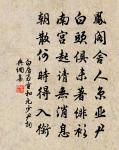 鳳閣舍人京亞尹
白頭俱未著緋衫
南宮起請無消息
朝散何時得入銜
白居易重和元少尹